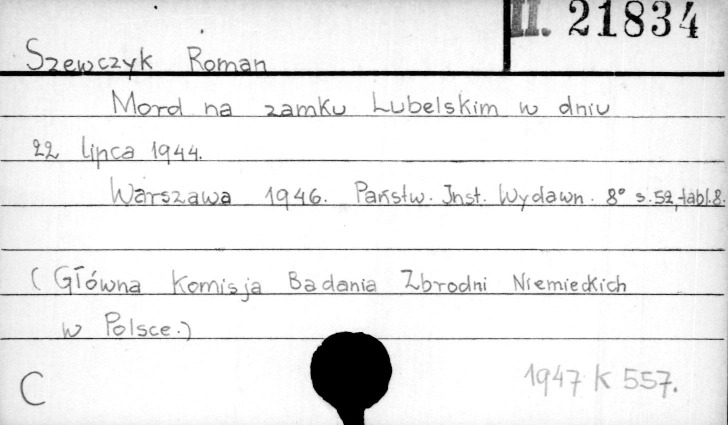 II. 21834
Szewczyk Roman
Mord na zamku Lubelskim w dniu
22 lipca 1944.
Warszawa 1946. Państw. Inst. Wydawn. 8° s. 52, tabl. 8.
(Główna Komisja Badania Zbrodni Niemieckich
w Polsce.)
C
1947 K 557.